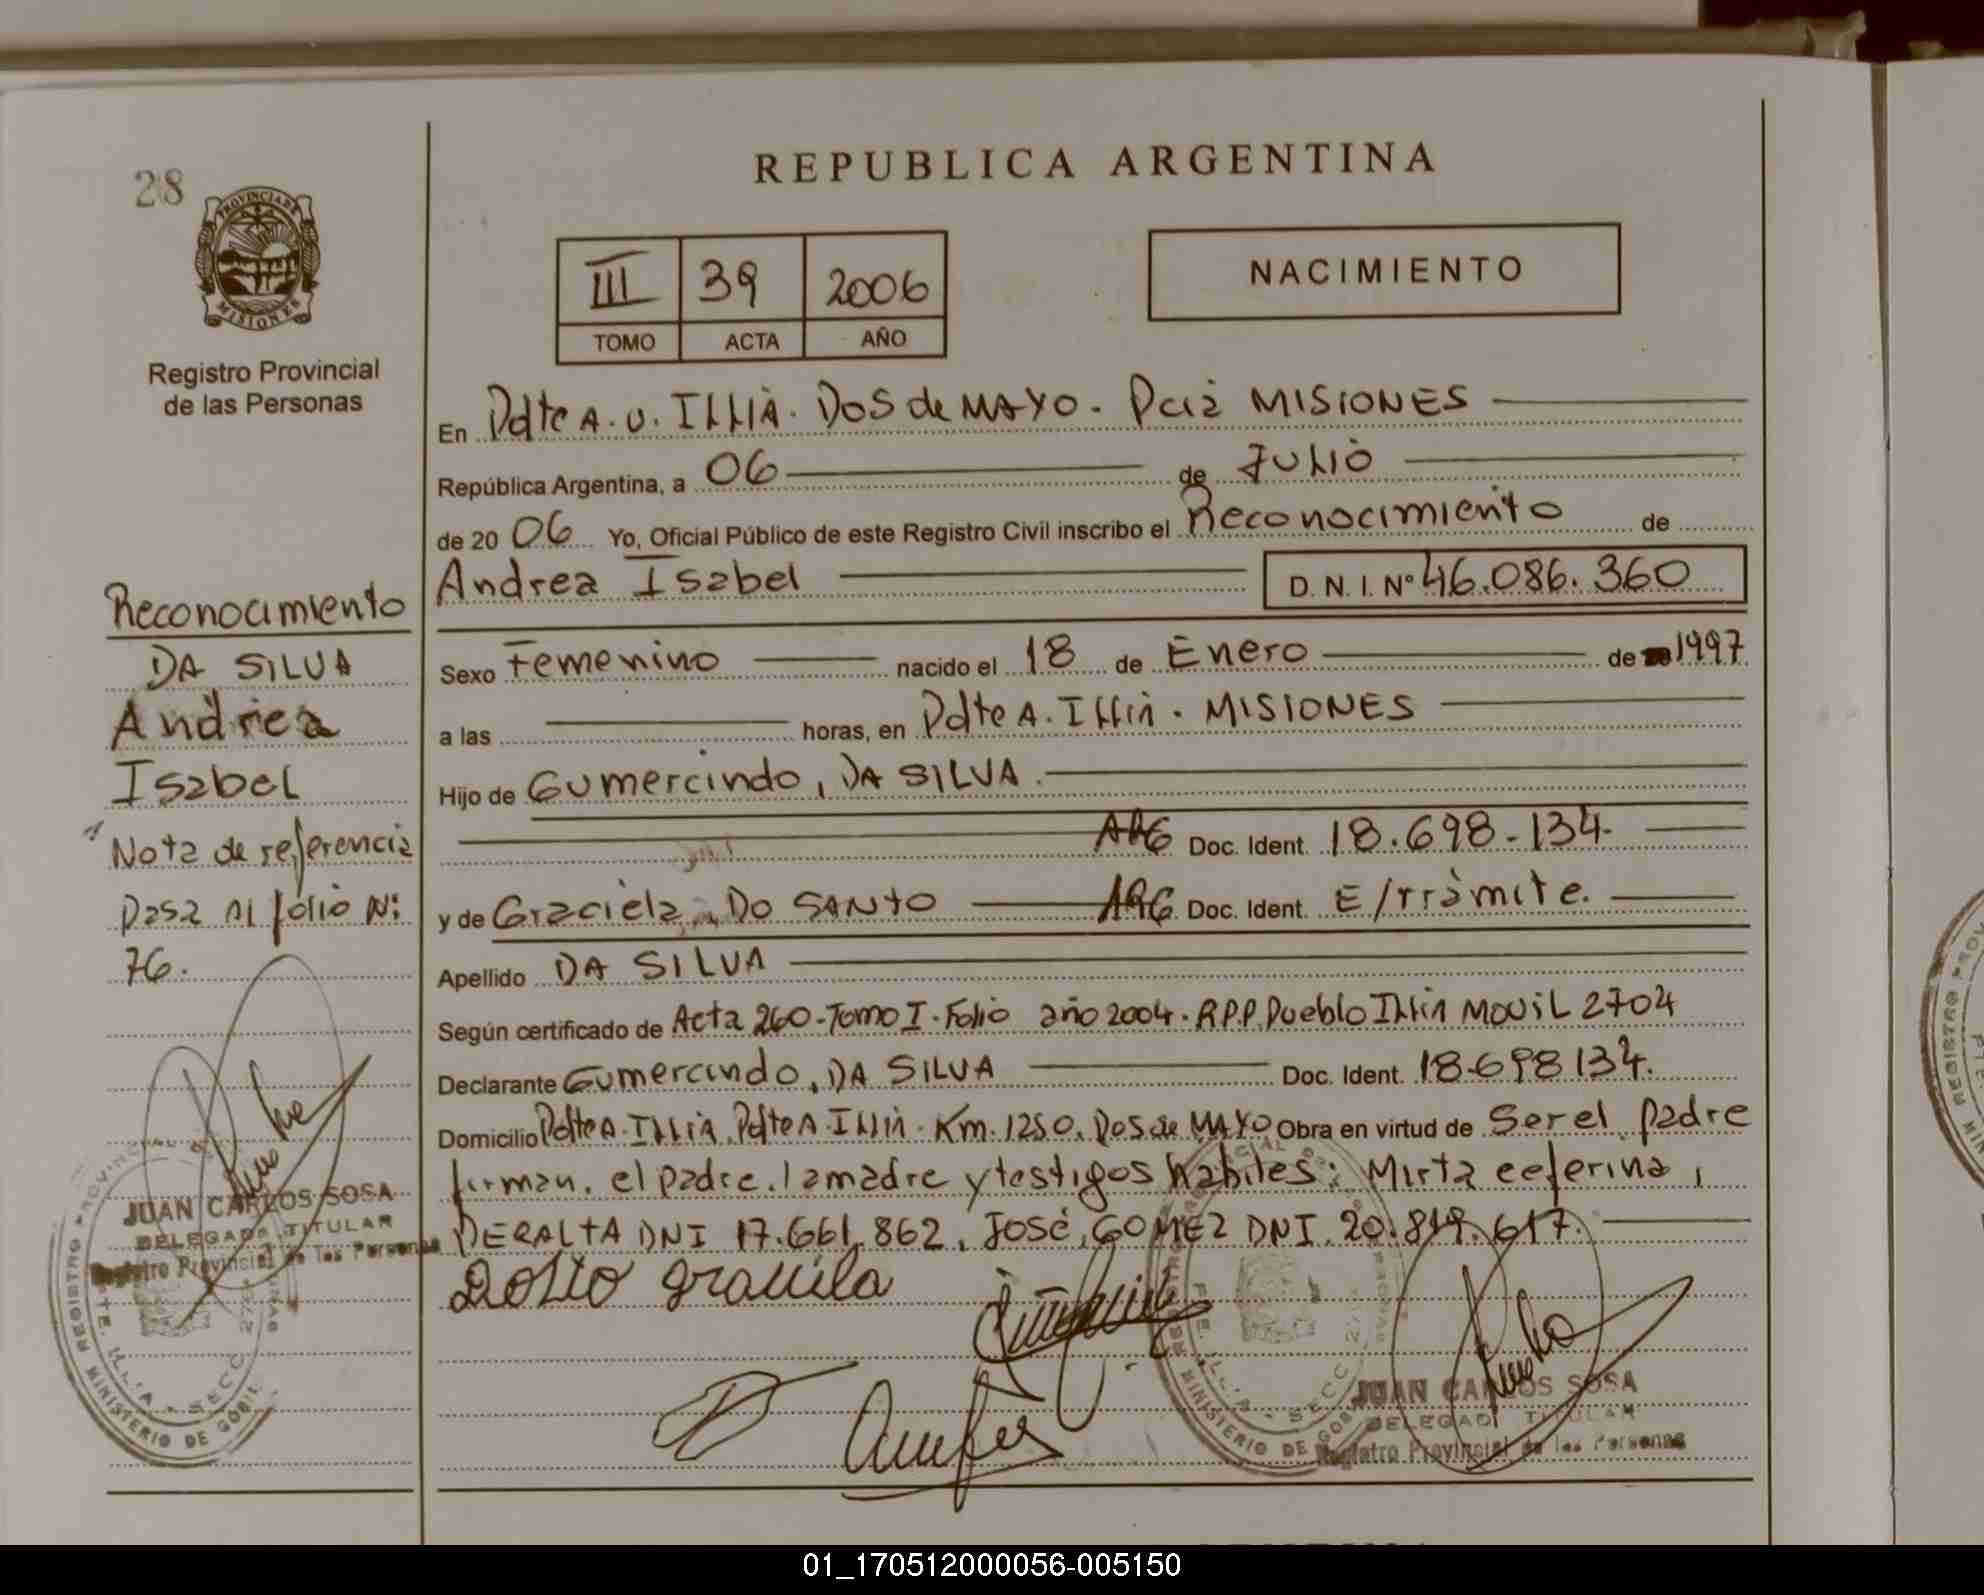 28
PROVINCIA DE
MISIONES
Registro Provincial
de las Personas
REPUBLICA ARGENTINA
III 39 2006
TOMO ACTA AÑO
NACIMIENTO
En Pdte A. U. ILLIA. DOS de MAYO. Pcia MISIONES
República Argentina, a 06 de JULIO
de 20 06 Yo, Oficial Público de este Registro Civil inscribo el Reconocimiento de
Andrea Isabel D. N. I. Nº 46.086.360
Sexo Femenino nacido el 18 de Enero de 1997
a las horas, en Pdte A. Illia. MISIONES
Hijo de Gumercindo, DA SILVA.
ARG Doc. Ident. 18.698.134.
y de Graciela, DO SANTO ARG Doc. Ident. E/tràmite.
Apellido DA SILVA
Según certificado de Acta 260-Tomo I. Folio año 2004. R.P.P. Pueblo Illia MOVIL 2704
Declarante Gumercindo, DA SILVA Doc. Ident. 18.698 134.
Domicilio Pdte A. Illia, Pdte A Illia. Km. 1250. Dos de MAYO Obra en virtud de Ser el padre
firman. el padre. la madre y testigos habiles: Mirta ceferina,
PERALTA DNI 17.661.862, José, GOMEZ DNI. 20.819.617.
JUAN CARLOS SOSA
DELEGADO TITULAR
Registro Provincial de las Personas
Reconocimiento
DA SILVA
Andrea
Isabel
Nota de referencia
Pasa al folio N:
76.
JUAN CARLOS SOSA
DELEGADO TITULAR
Registro Provincial de las Personas
01_170512000056-005150